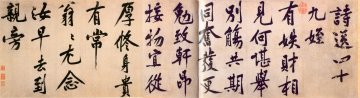 詩送四十
九姪
有娛財相
見何堪舉
別觴共期
同奮發更
勉致軒昂
接物宜從
厚脩身貴
有常
翁〻尤念
汝早去到
親旁